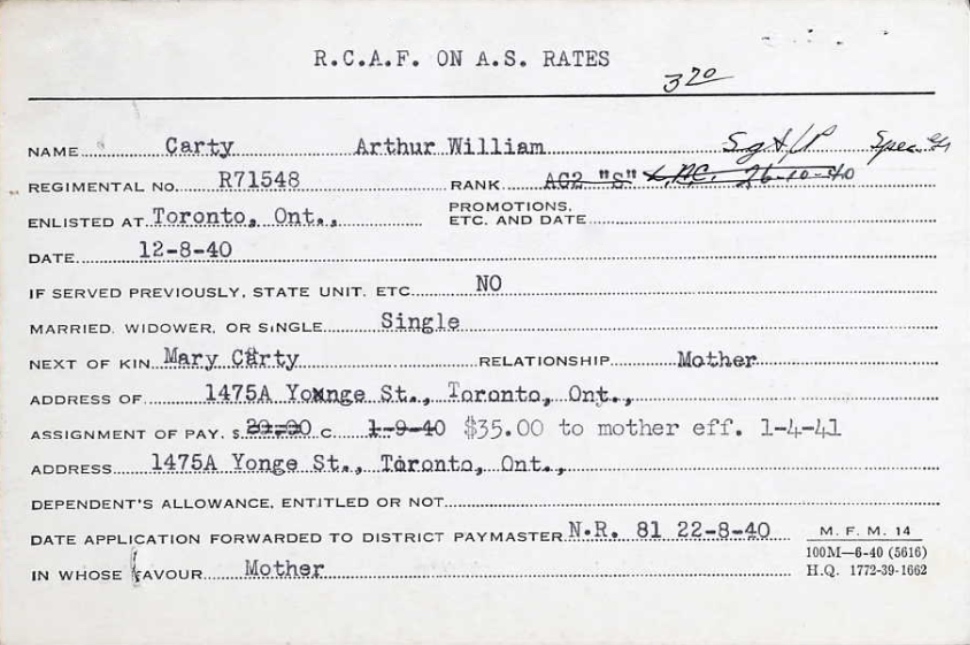 R.C.A.F. ON A.S. RATES
3 20
NAME Carty Arthur William Sgt/P Spec.
REGIMENTAL NO. R71548 RANK AC2 "S" L.A.C. 26-10-40
ENLISTED AT Toronto, Ont., PROMOTIONS, ETC. AND DATE
DATE 12-8-40
IF SERVED PREVIOUSLY, STATE UNIT. ETC NO
MARRIED. WIDOWER, OR SINGLE Single
NEXT OF KIN Mary Carty RELATIONSHIP Mother
ADDRESS OF 1475A Younge St., Toronto, Ont.,
ASSIGNMENT OF PAY. $ 20.00 C. 1-9-40 $35.00 to mother eff. 1-4-41
ADDRESS 1475A Yonge St., Toronto, Ont.,
DEPENDENT'S ALLOWANCE, ENTITLED OR NOT
DATE APPLICATION FORWARDED TO DISTRICT PAYMASTER N.R. 81 22-8-40
IN WHOSE FAVOUR Mother
M. F. M. 14
100M—6-40 (5616)
H.Q. 1772-39-1662